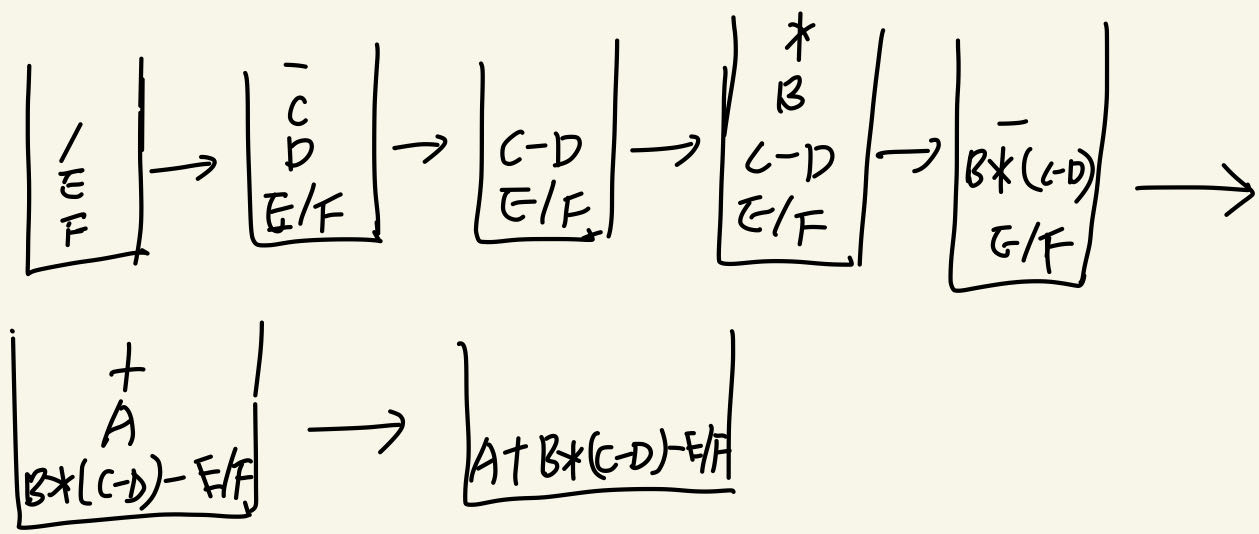 /
E
F
-
C
D
E/F
C-D
E/F
*
B
C-D
E/F
-
B*(C-D)
E/F
+
A
B*(C-D)-E/F
A+B*(C-D)-E/F